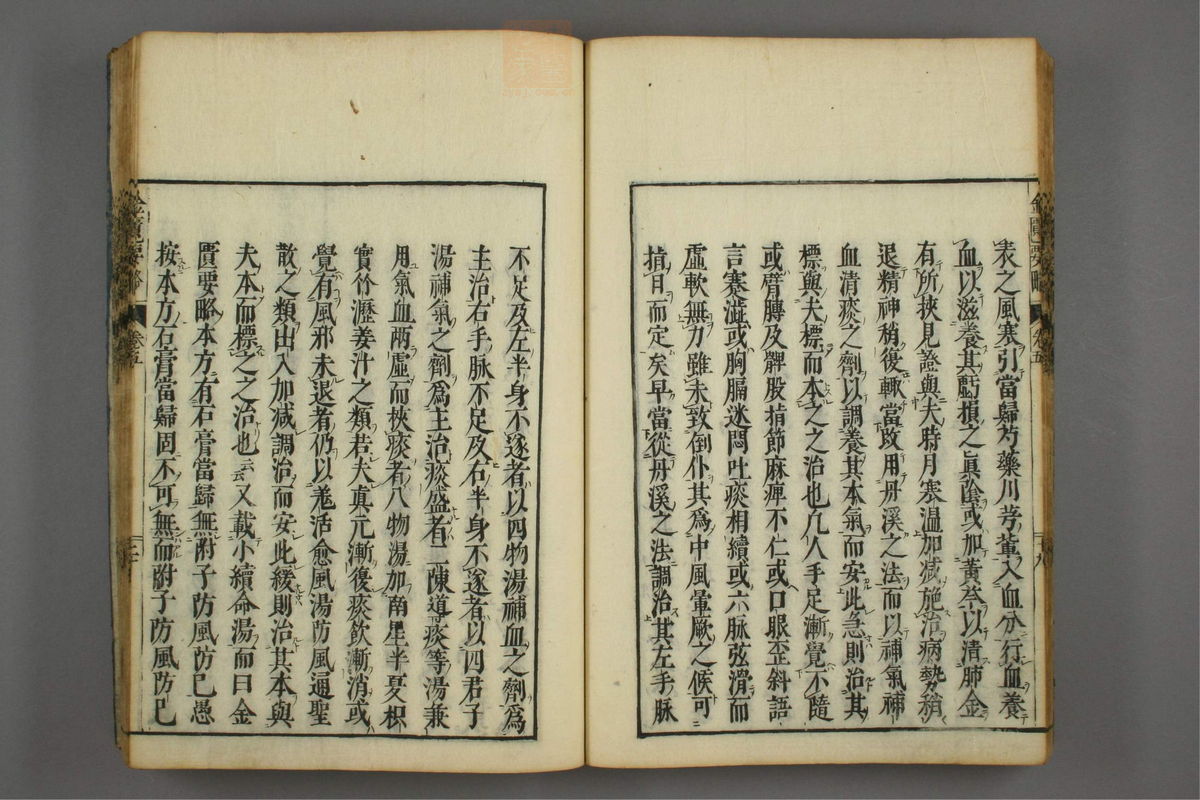 表之風寒引當歸芍藥川芎軰入血分行血養
血以滋養其虧損之眞陰或加黃芩以清肺金
有所挾見證與夫時月寒溫加减施治病勢稍
退精神稍復輙當改用丹溪之法而以補氣補
血清痰之劑以調養其本氣而安此急則治其
標與夫標而本之之治也凡人手足漸覺不隨
或臂膊及髀股指節麻痺不仁或口眼歪斜語
言蹇澁或胸膈迷悶吐痰相續或六脉弦滑而
虛軟無力雖未致倒仆其爲中風暈厥之候可
指日而定矣早當從丹溪之法調治其左手脉
不足及左半身不遂者以四物湯補血之劑爲
主治右手脉不足及右半身不遂者以四君子
湯補氣之劑爲主治痰盛者二陳導痰等湯兼
用氣血兩虛而挾痰者八物湯加南星半夏枳
實竹瀝姜汁之類若夫真元漸復痰飲漸消或
覺有風邪未退者仍以羗活愈風湯防風通聖
散之類出入加减調治而安此緩則治其本與
夫本而標之之治也云云又載小續命湯而曰金
匱要略本方有石膏當歸無附子防風防已愚
按本方石膏當歸固不可無而附子防風防已
金匱要略
卷五
十九
金匱要略
卷五
二十